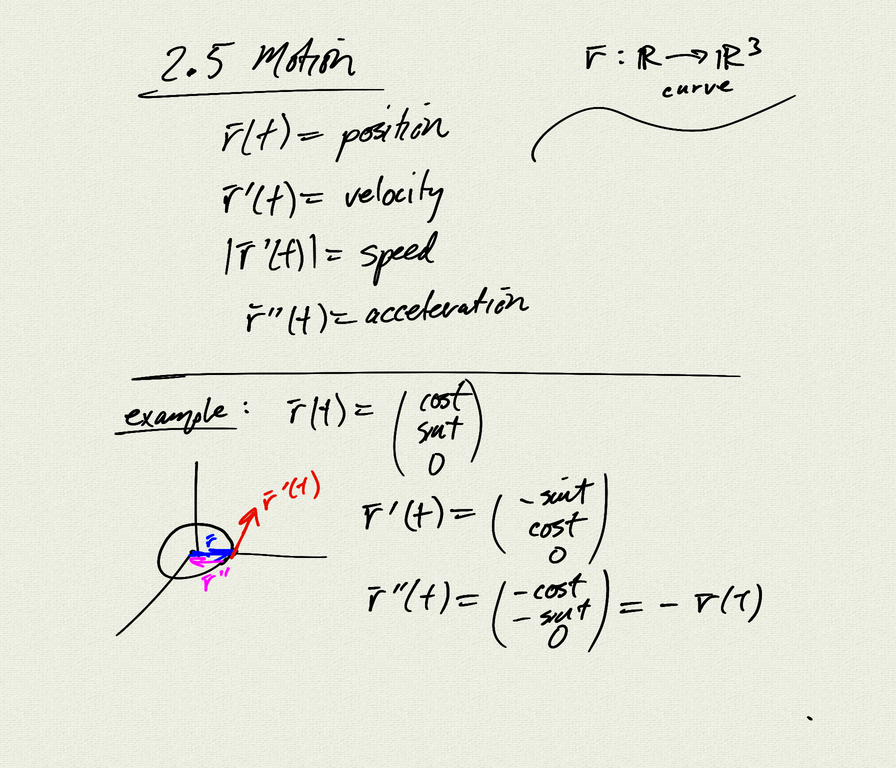 2.5 Motion
r̄ : ℝ → ℝ³
curve
r̄(t) = position
r̄'(t) = velocity
|r̄'(t)| = speed
r̄''(t) = acceleration
example : r̄(t) = (cost
sint
0)
r̄'(t)
r̄
r̄''
r̄'(t) = (-sint
cost
0)
r̄''(t) = (-cost
-sint
0) = - r̄(t)